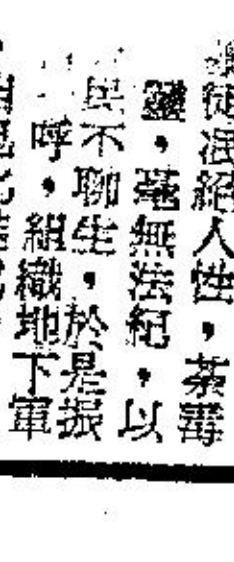 徒泯絕人性，荼毒
靈，毫無法紀，以
民不聊生，於是振
呼，組織地下軍